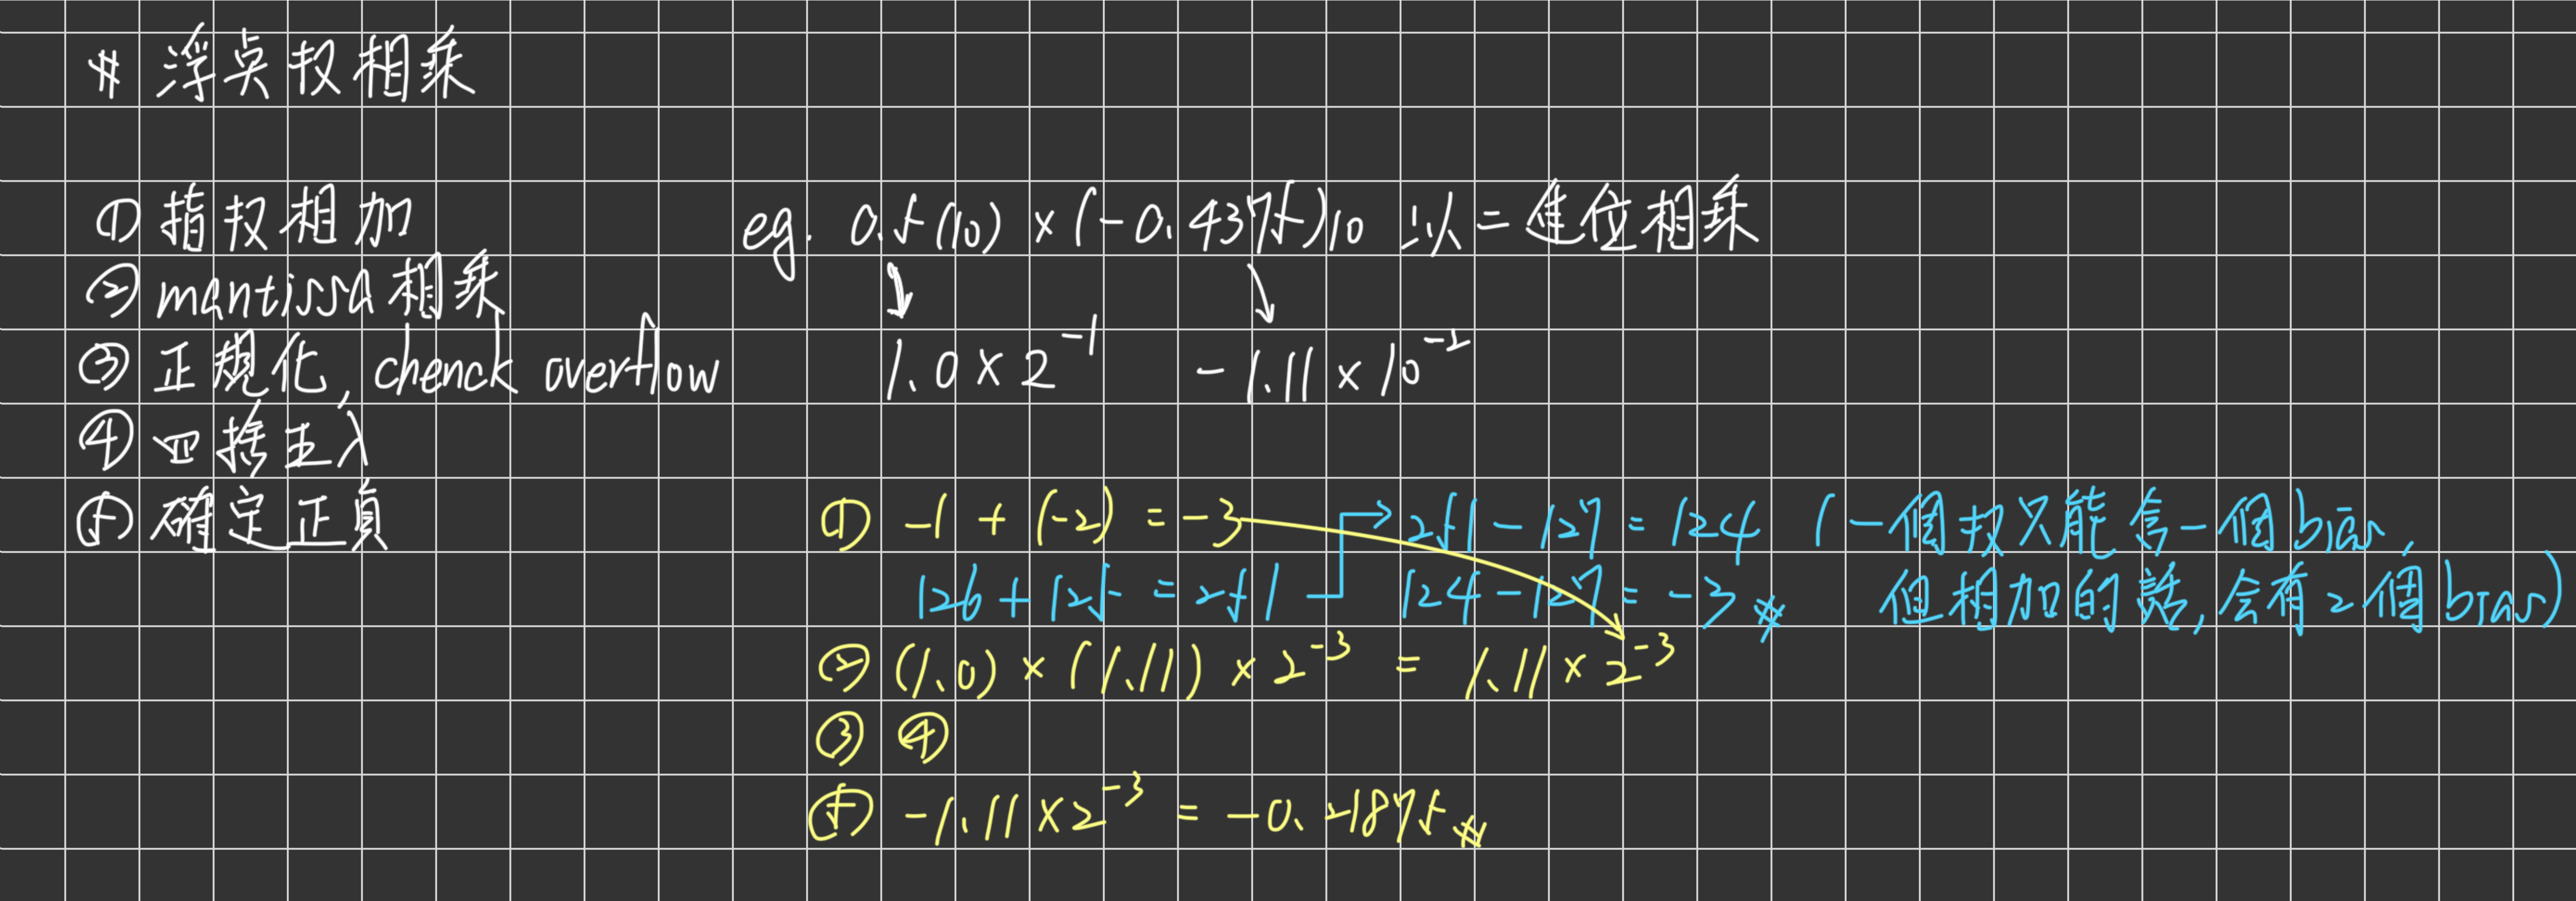 # 浮点扠相乘
① 指扠相加
② mantissa 相乘
③ 正規化, chenck overflow
④ 四捨五入
⑤ 確定正負
eg. 0.5(10) × (-0.4375)10 以二進位相乘
1.0 × 2^-1    -1.11 × 10^-2
① -1 + (-2) = -3
126 + 125 = 251 → 251 - 127 = 124 (一個扠只能含一個bias,
124 - 127 = -3 但相加的話, 会有2個bias)
② (1.0) × (1.11) × 2^-3 = 1.11 × 2^-3
③ ④
⑤ -1.11 × 2^-3 = -0.21875